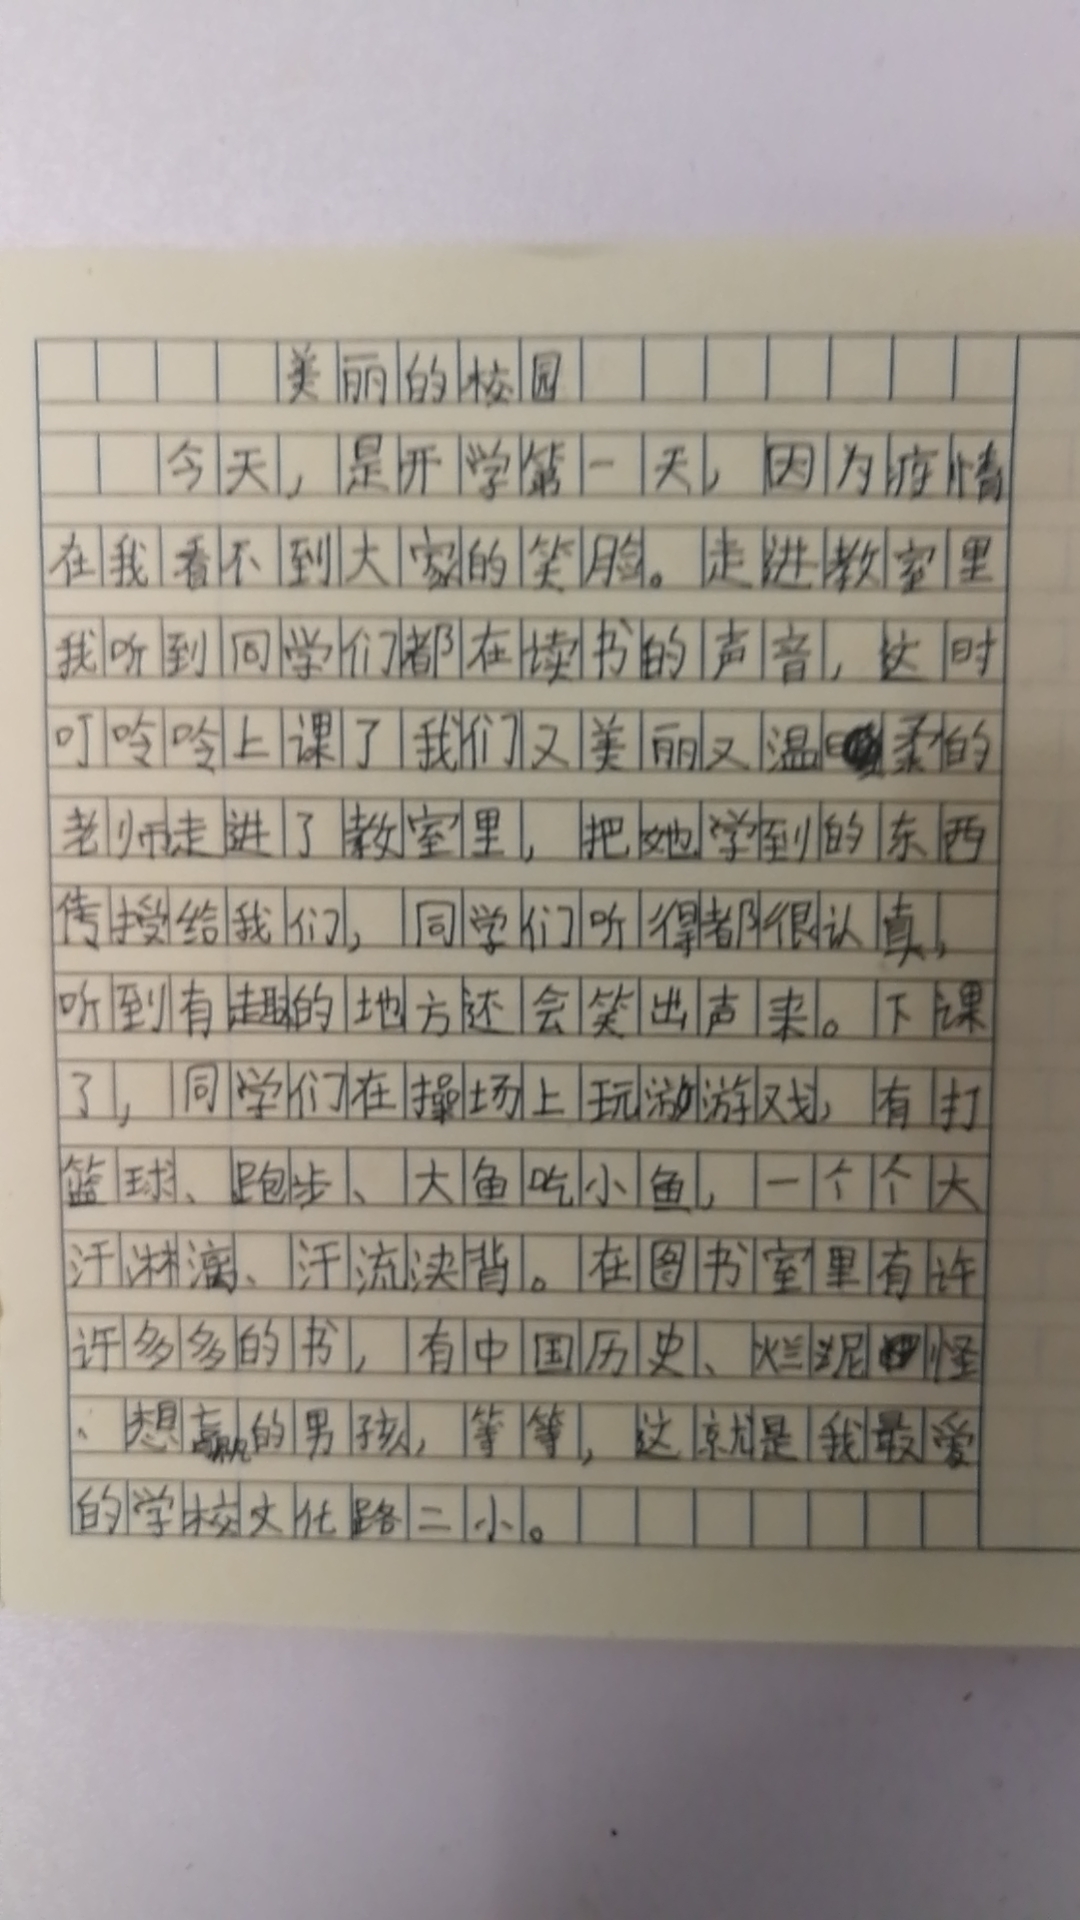 美丽的校园
今天，是开学第一天，因为疫情
在我看不到大家的笑脸。走进教室里
我听到同学们都在读书的声音，这时
叮呤呤上课了我们又美丽又温柔的
老师走进了教室里，把她学到的东西
传授给我们，同学们听得都很认真，
听到有趣的地方还会笑出声来。下课
了，同学们在操场上玩游游戏，有打
篮球、跑步、大鱼吃小鱼，一个个大
汗淋漓、汗流浃背。在图书室里有许
许多多的书，有中国历史、烂泥怪
、想赢的男孩，等等，这就是我最爱
的学校文化路二小。